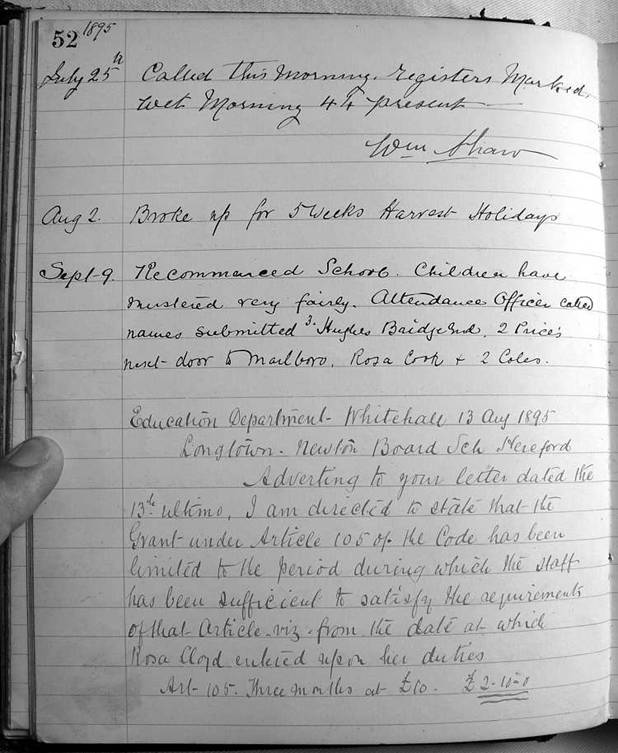 52 1895
July 25th Called this Morning. registers Marked.
Wet Morning 44 present
Wm Shaw
Aug 2. Broke up for 5 Weeks Harvest Holidays
Sept 9. Recommenced School. Children have
mustered very fairly. Attendance Officer called
names submitted 3. Hughes Bridge End, 2 Prices
next-door to Marlboro, Rosa Cook + 2 Coles.
Education Department Whitehall 13 Aug 1895
Longtown - Newton Board Sch Hereford
Adverting to your letter dated the
13th ultimo, I am directed to state that the
Grant under Article 105 of the Code has been
limited to the period during which the staff
has been sufficient to satisfy the requirements
of that Article viz. from the date at which
Rosa Lloyd entered upon her duties
Art 105. Three months at £10. £2-10-0